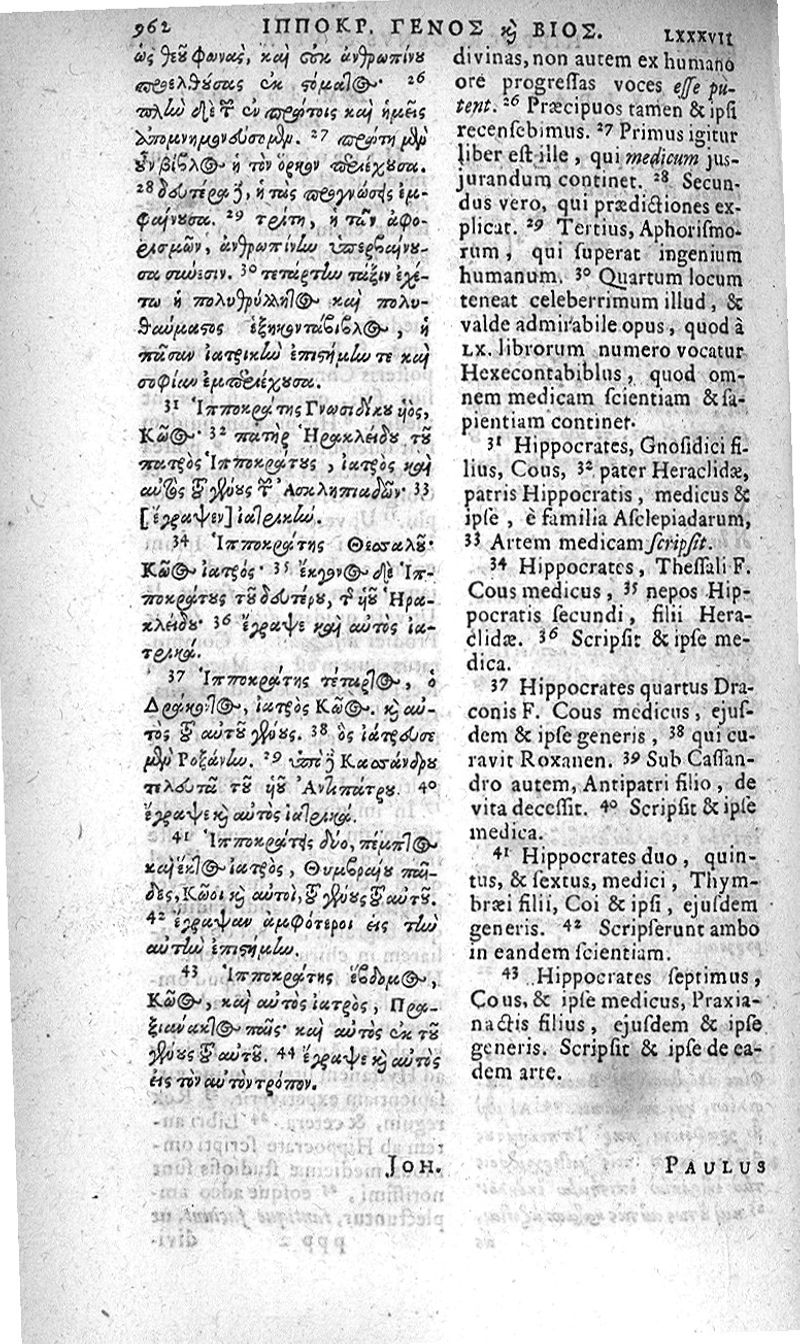 962 ΙΠΠΟΚΡ. ΓΕΝΟΣ ϗ ΒΙΟΣ. LXXXVII
ὡς θεοῦ φωνὰς, καὶ οὐκ ἀνθρωπίνου
προελθούσας ἐκ στόματος· 26
πλὴν δὲ τῶν ἐν πρώτοις καὶ ἡμεῖς
ἀπομνημονεύσομεν. 27 πρώτη μὲν
οὖν βίβλος ἡ τὸν ὅρκον περιέχουσα.
28 δευτέρα δὲ, ἡ τὰς προγνώσεις ἐμ-
φαίνουσα. 29 τρίτη, ἡ τῶν ἀφο-
ρισμῶν, ἀνθρωπίνην ὑπερβαίνου-
σα σύνεσιν. 30 τετάρτην τάξιν ἐχέ-
τω ἡ πολυθρύλλητος καὶ πολυ-
θαύμαστος ἑξηκοντάβιβλος, ἡ
πᾶσαν ἰατρικὴν ἐπιστήμην τε καὶ
σοφίαν ἐμπεριέχουσα.
31 Ἱπποκράτης Γνωσιδίκου υἱὸς,
Κῶος· 32 πατὴρ Ἡρακλείδου τοῦ
πατρὸς Ἱπποκράτους, ἰατρὸς καὶ
αὐτὸς τοῦ γένους τῶν Ἀσκληπιαδῶν· 33
[ἔγραψεν] ἰατρικήν.
34 Ἱπποκράτης Θεσσαλοῦ·
Κῶος ἰατρός· 35 ἔκγονος δὲ Ἱπ-
ποκράτους τοῦ δευτέρου, τοῦ υἱοῦ Ἡρα-
κλείδου· 36 ἔγραψε καὶ αὐτὸς ἰα-
τρικά.
37 Ἱπποκράτης τέταρτος, ὁ
Δράκοντος, ἰατρὸς Κῶος. ϗ αὐ-
τὸς τοῦ αὐτοῦ γένους. 38 ὃς ἰάτρευσε
μὲν Ῥοξάνην. 29 ὑπὸ δὲ Κασσάνδρου
τελευτᾷ τοῦ υἱοῦ Ἀντιπάτρου. 40
ἔγραψε ϗ αὐτὸς ἰατρικά.
41 Ἱπποκράτης δύο, πέμπτος
καὶ ἕκτος ἰατρὸς, Θυμβραίου παῖ-
δες, Κῶοι ϗ αὐτοὶ, τοῦ γένους τοῦ αὐτοῦ.
42 ἔγραψαν ἀμφότεροι εἰς τὴν
αὐτὴν ἐπιστήμην.
43 Ἱπποκράτης ἕβδομος,
Κῶος, καὶ αὐτὸς ἰατρὸς, Πρα-
ξιάνακτος παῖς· καὶ αὐτὸς ἐκ τοῦ
γένους τοῦ αὐτοῦ. 44 ἔγραψε ϗ αὐτὸς
εἰς τὸν αὐτὸν τρόπον.
JOH.
divinas, non autem ex humano
ore progressas voces esse pu-
tent. 26 Præcipuos tamen & ipsi
recensebimus. 27 Primus igitur
liber est ille, qui medicum jus-
jurandum continet. 28 Secun-
dus vero, qui prædictiones ex-
plicat. 29 Tertius, Aphorismo-
rum, qui superat ingenium
humanum. 30 Quartum locum
teneat celeberrimum illud, &
valde admirabile opus, quod à
LX. librorum numero vocatur
Hexecontabiblus, quod om-
nem medicam scientiam & sa-
pientiam continet.
31 Hippocrates, Gnosidici fi-
lius, Cous, 32 pater Heraclidæ,
patris Hippocratis, medicus &
ipse, è familia Asclepiadarum,
33 Artem medicam scripsit.
34 Hippocrates, Thessali F.
Cous medicus, 35 nepos Hip-
pocratis secundi, filii Hera-
clidæ. 36 Scripsit & ipse me-
dica.
37 Hippocrates quartus Dra-
conis F. Cous medicus, ejus-
dem & ipse generis, 38 qui cu-
ravit Roxanen. 39 Sub Cassan-
dro autem, Antipatri filio, de
vita decessit. 40 Scripsit & ipse
medica.
41 Hippocrates duo, quin-
tus, & sextus, medici, Thym-
bræi filii, Coi & ipsi, ejusdem
generis. 42 Scripserunt ambo
in eandem scientiam.
43 Hippocrates septimus,
Cous, & ipse medicus, Praxia-
nactis filius, ejusdem & ipse
generis. Scripsit & ipse de ea-
dem arte.
PAULUS